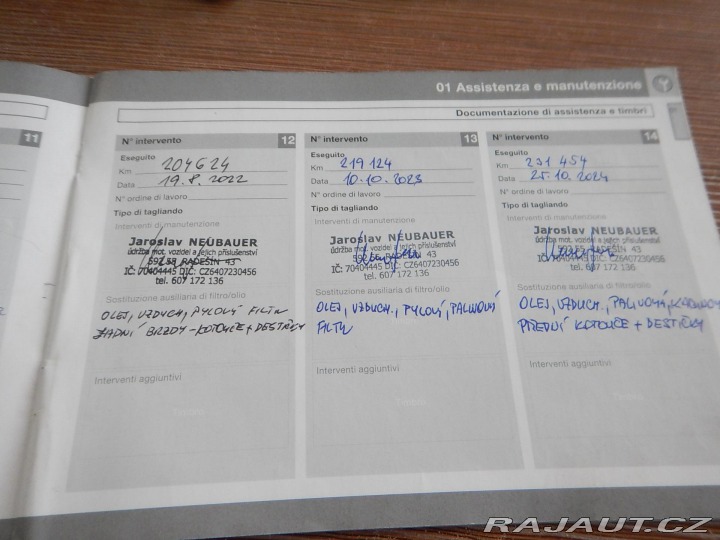 01 Assistenza e manutenzione
Documentazione di assistenza e timbri
11
N° intervento 12
Eseguito
Km 204624
Data 19.8.2022
N° ordine di lavoro
Tipo di tagliando
Interventi di manutenzione
Jaroslav NEUBAUER
údržba mot. vozidel a jejich příslušenství
592 55 RADEŠÍN 43
IČ: 70404445 DIČ: CZ6407230456
tel. 607 172 136
Sostituzione ausiliaria di filtro/olio
OLEJ, VZDUCH, PYLOVÝ FILTR
ZADNÍ BRZDY - KOTOUČE + DESTIČKY
Interventi aggiuntivi
Timbro
N° intervento 13
Eseguito
Km 219 124
Data 10.10.2023
N° ordine di lavoro
Tipo di tagliando
Interventi di manutenzione
Jaroslav NEUBAUER
údržba mot. vozidel a jejich příslušenství
592 55 RADEŠÍN 43
IČ: 70404445 DIČ: CZ6407230456
tel. 607 172 136
Sostituzione ausiliaria di filtro/olio
OLEJ, VZDUCH, PYLOVÝ, PALIVOVÝ
FILTR
Interventi aggiuntivi
Timbro
N° intervento 14
Eseguito
Km 231 454
Data 25.10.2024
N° ordine di lavoro
Tipo di tagliando
Interventi di manutenzione
Jaroslav NEUBAUER
údržba mot. vozidel a jejich příslušenství
592 55 RADEŠÍN 43
IČ: 70404445 DIČ: CZ6407230456
tel. 607 172 136
Sostituzione ausiliaria di filtro/olio
OLEJ, VZDUCH, PALIVOVÝ,
PŘEDNÍ KOTOUČE + DESTIČKY
Interventi aggiuntivi
RAJAUT.CZ